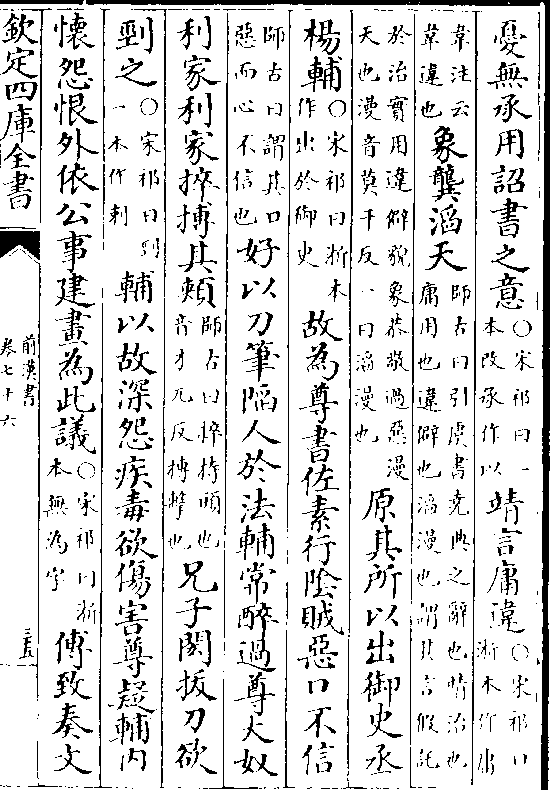 憂無承用詔書之意○宋祁曰一本改承作以靖言庸違○宋祁曰浙本作庸
韋注云韋違也象龔滔天師古曰引虞書堯典之辭也靖治也庸用也違僻也滔漫也謂其言假託
於治實用違僻貌象恭敬過惡漫天也漫音莫干反一曰滔漫也原其所以出御史丞
楊輔○宋祁曰浙本作出於御史故為尊書佐素行陰賊惡口不信
師古曰謂其口惡而心不信也好以刀筆陷人於法輔常醉過尊大奴
利家利家捽搏其頰師古曰捽持頭也音才兀反搏擊也兄子閎拔刀欲
剄之○宋祁曰剄一本作刺輔以故深怨疾毒欲傷害尊疑輔內
懷怨恨外依公事建畫為此議○宋祁曰浙本無為字傅致奏文
欽定四庫全書
前漢書
卷七十六
三五